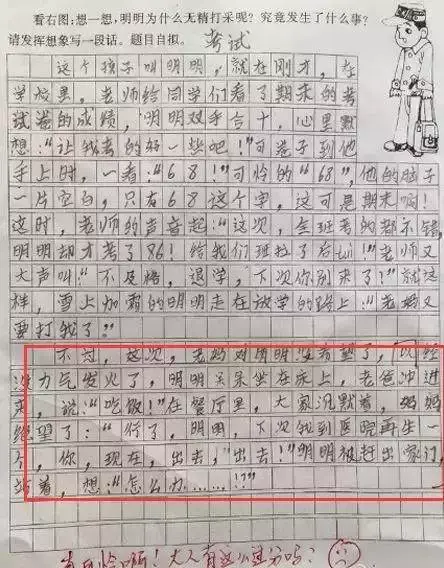 看右图:想一想,明明为什么无精打采呢?究竟发生了什么事?
请发挥想象写一段话。题目自拟。
考试
这个孩子叫明明,就在刚才,在
学校里,老师给同学们看了期末的考
试卷的成绩,明明双手合十,心里默
想:“让我考的好一些吧!”可卷子到他
手上时,一看:“68!”可怜的“68”,他的脑子
一片空白,只有68这个字,这可是期末啊!
这时,老师的声音起:“这次,全班考的都不错,
明明却才考了86!给我们班拉了后tui!”老师又
大声叫:“不及格,退学,下次你别来了!”就这
样,雪上加霜的明明走在放学的路上:“老妈又
要打我了。”
不过,这次,老妈对明明没希望了,已经
没力气发火了,明明呆呆坐在床上,老爸冲进
来,说:“吃饭!”在餐厅里,大家沉默着,妈妈
绝望了:“行了,明明,下次我到医院再生一
个,你,现在,出去,”出去!”明明被赶出家门,
站着,想:“怎么办……!?”
啊!大人有这么过分吗?